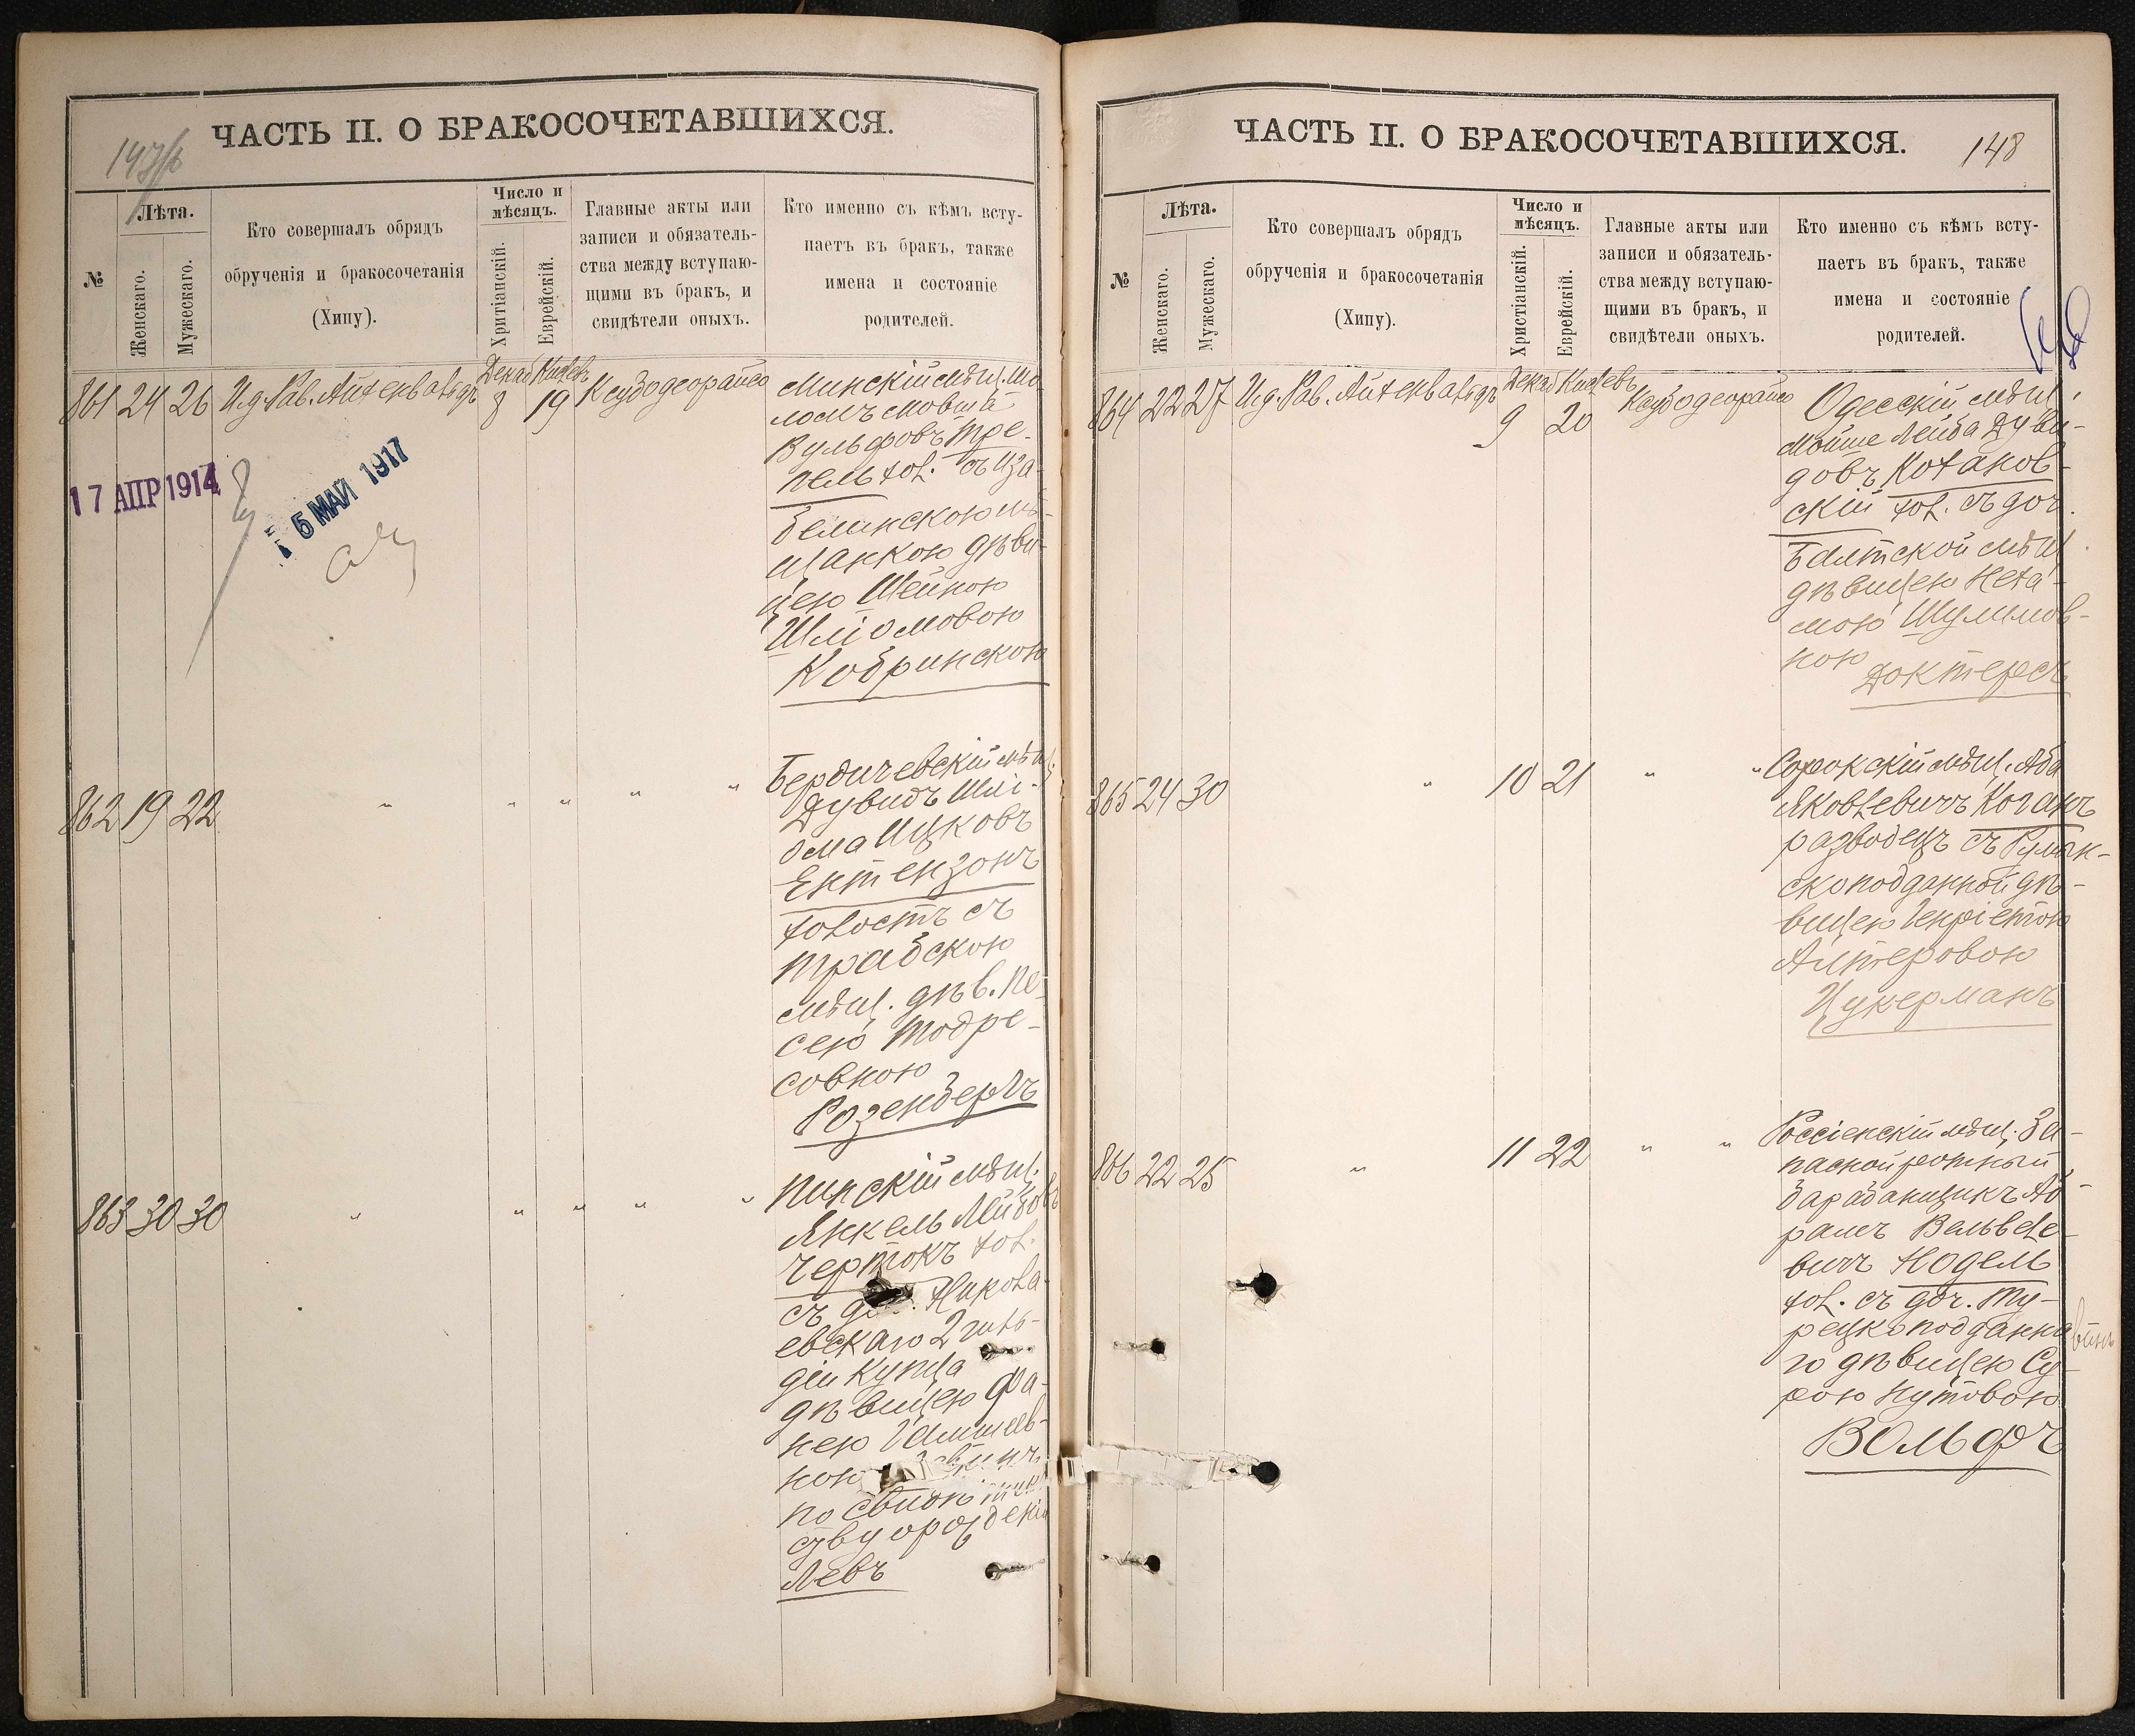 ЧАСТЬ II. О БРАКОСОЧЕТАВШИХСЯ.
№
Лѣта.
Женскаго.
Мужескаго.
Кто совершалъ обрядъ
обрученія и бракосочетанія
(Хипу).
Число и
мѣсяцъ.
Хритіанскій.
Еврейскій.
Главные акты или
записи и обязатель-
ства между вступаю-
щими въ бракъ, и
свидѣтели оныхъ.
Кто именно съ кѣмъ всту-
паетъ въ бракъ, также
имена и состояніе
родителей.
861 24 26 И.д. Рав. Айхенвальдъ
Декаб 8
Кислевъ 19
Ксубодеорайсо
Минскій мѣщ. Шо-
ломъ Мовша
Вульфовъ Тре-
пель хол. съ Иза-
белинскою мѣ-
щанкою дѣви-
цею Шейною
Шліомовою
Кобринскою
17 АПР 1914
5 МАЙ 1917
862 19 22 " " " " "
Бердичевскій мѣщ.
Дувидъ Шлі-
ома Ицковъ
Ентензонъ
холостъ съ
Трабскою
мѣщ. дѣв. Пе-
сею Тодре-
совною
Розенберъ
863 30 30 " " " " "
Пинскій мѣщ.
Янкель Лейбовъ
Чертокъ хол.
съ Никола-
евскаго 2 гиль-
діи купца
дѣвицею Фа-
нею
ною
по
ству
Левъ
ЧАСТЬ II. О БРАКОСОЧЕТАВШИХСЯ.
148
№
Лѣта.
Женскаго.
Мужескаго.
Кто совершалъ обрядъ
обрученія и бракосочетанія
(Хипу).
Число и
мѣсяцъ.
Христіанскій.
Еврейскій.
Главные акты или
записи и обязатель-
ства между вступаю-
щими въ бракъ, и
свидѣтели оныхъ.
Кто именно съ кѣмъ всту-
паетъ въ бракъ, также
имена и состояніе
родителей.
864 22 27 И.д. Рав. Айхенвальдъ
Декаб 9
Кислевъ 20
Ксубодеорайсо
Одесскій мѣщ.
Мойше Лейба Дуви-
довъ Котанов-
скій хол. съ доч.
Балтской мѣщ.
дѣвицею Неха-
мою Шулимов-
ною
Доктерсъ
865 24 30 " 10 21 " "
Сорокскій мѣщ. Аба
Яковлевичъ Коганъ
разводецъ съ Румын-
скоподданной дѣ-
вицею Генріетою
Алтеровою
Цукерманъ
866 22 25 " 11 22 " "
Россіенскій мѣщ. За-
пасной ротный
барабанщикъ Аб-
рамъ Вельвеле-
вичъ Нодель
хол. съ доч. Ту-
рецкоподданна-
го дѣвицею Су-
рою Нутовою
Вольфъ